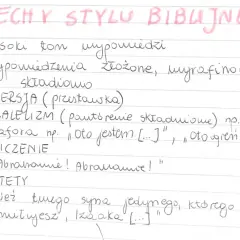 ECHY STYLU BIBLIJN
soki ton wypowiedzi
ypowiedzenia złożone, wyrafino
składniowo
ERSJA (przestawka)
ALELIZM (powtórzenie składniowe) np.
afora np. „Oto jestem [...]", „Oto ogień
ICZENIE
Abrahamie! Abrahamie!"
TETY
ież twego syna jedynego, którego
miłujesz, Izaaka [...]"